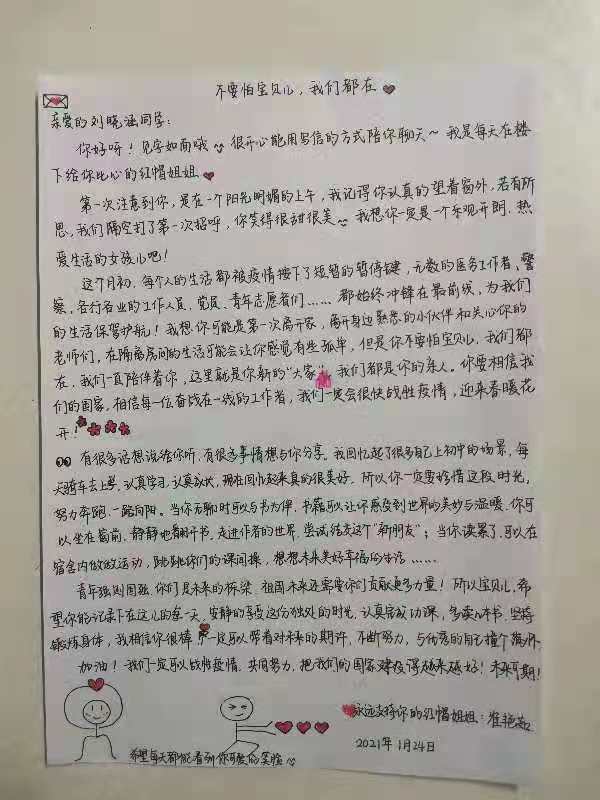 不要怕宝贝儿，我们都在
亲爱的刘晓涵同学：
你好呀！见字如面哦 很开心能用写信的方式陪你聊天~ 我是每天在楼
下给你比心的红帽姐姐
第一次注意到你，是在一个阳光明媚的上午，我记得你认真的望着窗外，若有所
思，我们隔空打了第一次招呼，你笑得很甜很美 我想你一定是一个乐观开朗、热
爱生活的女孩儿吧！
这个月初，每个人的生活都被疫情按下了短暂的暂停键，无数的医务工作者、警
察、各行各业的工作人员、党员、青年志愿者们……都始终冲锋在最前线，为我们
的生活保驾护航！我想你可能是第一次离开家，离开身边熟悉的小伙伴和关心你的
老师们，在隔离房间的生活可能会让你感觉有些孤单，但是你不要怕宝贝儿，我们都
在，我们一直陪伴着你，这里就是你新的“大家”，我们都是你的亲人。你要相信我
们的国家，相信每一位奋战在一线的工作者，我们一定会很快战胜疫情，迎来春暖花
开！
有很多话想说给你听，有很多事情想与你分享。我回忆起了很多自己上初中的场景，每
天骑车去上学、认真学习、认真成长，现在回忆起来真的很美好。所以你一定要珍惜这段时光，
努力奔跑，一路向阳。当你无聊时可以与书为伴，书籍可以让你感受到世界的美妙与温暖，你可
以坐在窗前，静静地翻开书，走进作者的世界，尝试结交这个“新朋友”；当你读累了，可以在
宿舍内做做运动，跳跳你们的课间操，想想未来美好幸福的生活……
青年强则国强，你们是未来的栋梁，祖国未来还需要你们贡献更多力量！所以宝贝儿，希
望你能记录下在这儿的每一天，安静的享受这份独处的时光，认真完成功课，多读几本书，坚持
锻炼身体，我相信你很棒 一定可以带着对未来的期许，不断努力，与优秀的自己撞个满怀。
加油！我们一定可以战胜疫情，共同努力，把我们的国家建设得越来越好！未来可期！
永远支持你的红帽姐姐：崔艳茹
2021年1月24日
希望每天都能看到你可爱的笑脸